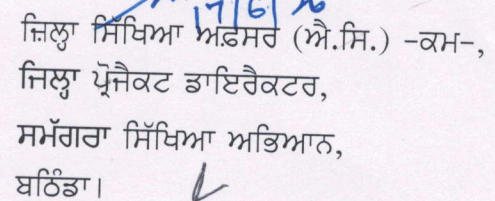 ਜ਼ਿਲ੍ਹਾ ਸਿੱਖਿਆ ਅਫ਼ਸਰ (ਐ.ਸਿ.) -ਕਮ-,
ਜਿਲ੍ਹਾ ਪ੍ਰੋਜੈਕਟ ਡਾਇਰੈਕਟਰ,
ਸਮੱਗਰਾ ਸਿੱਖਿਆ ਅਭਿਆਨ,
ਬਠਿੰਡਾ।